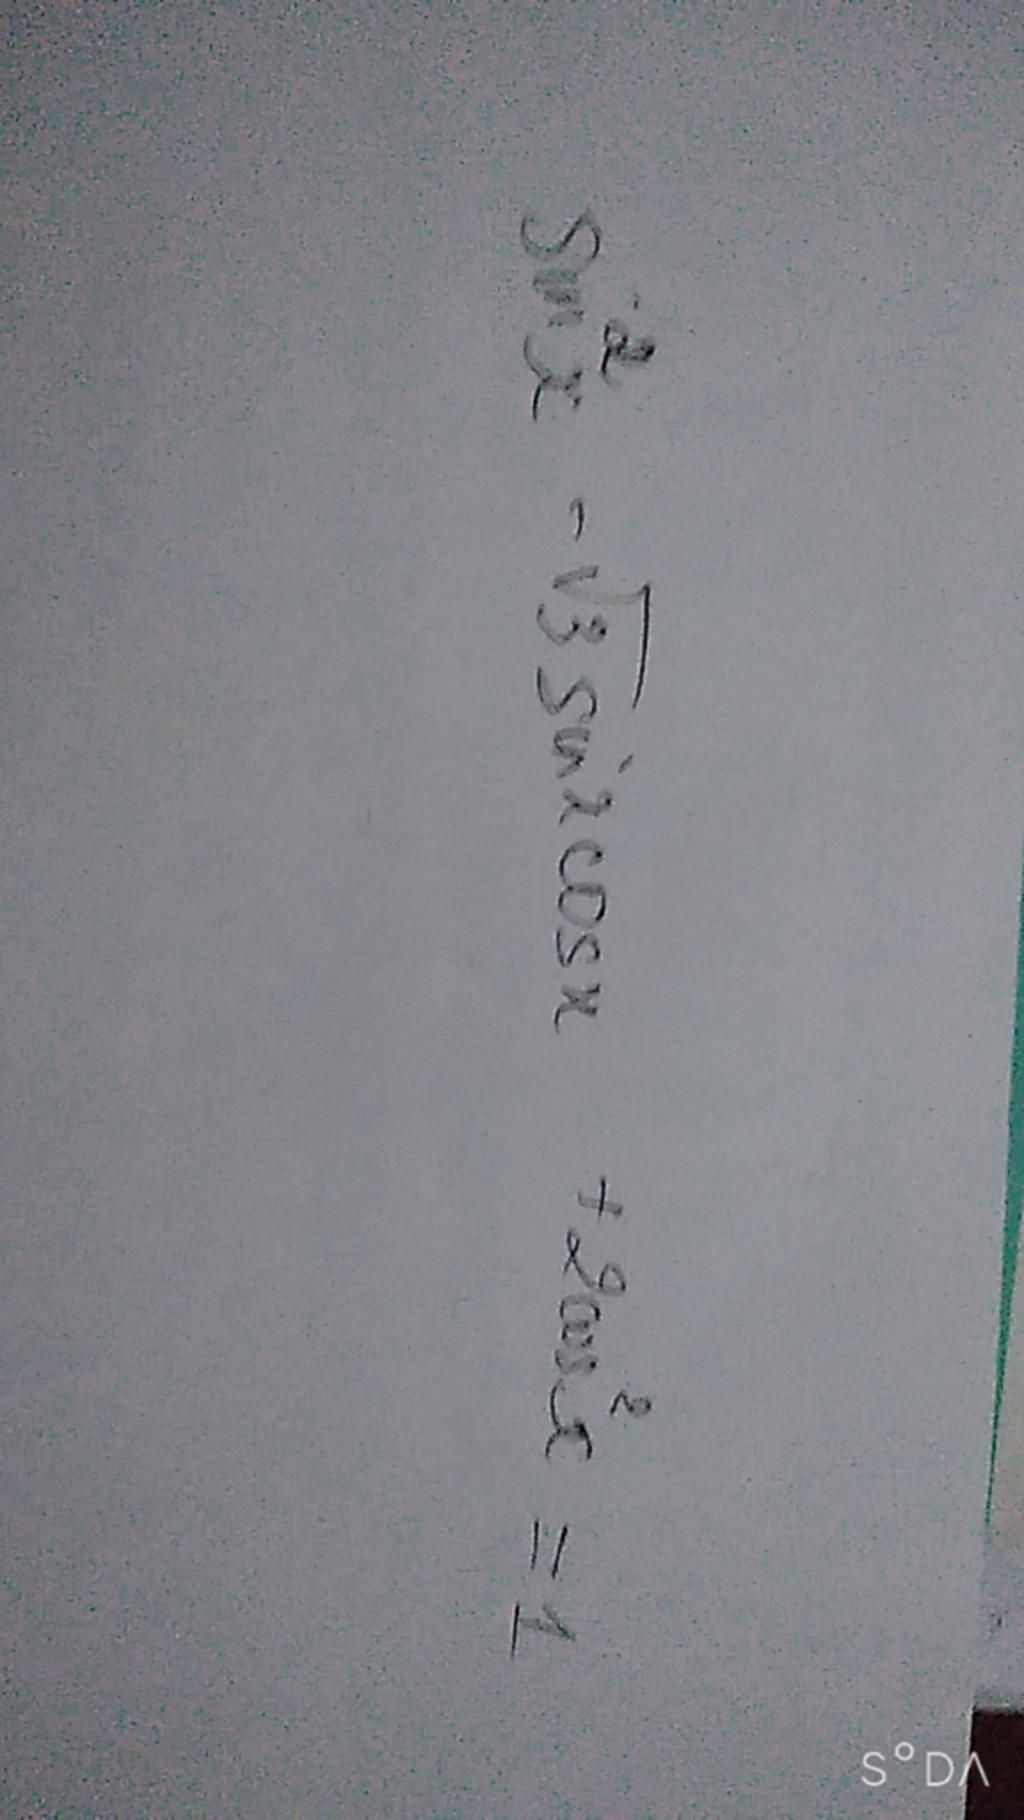 sin²x - √3 sin x cos x + 2cos²x = 1
S°DA